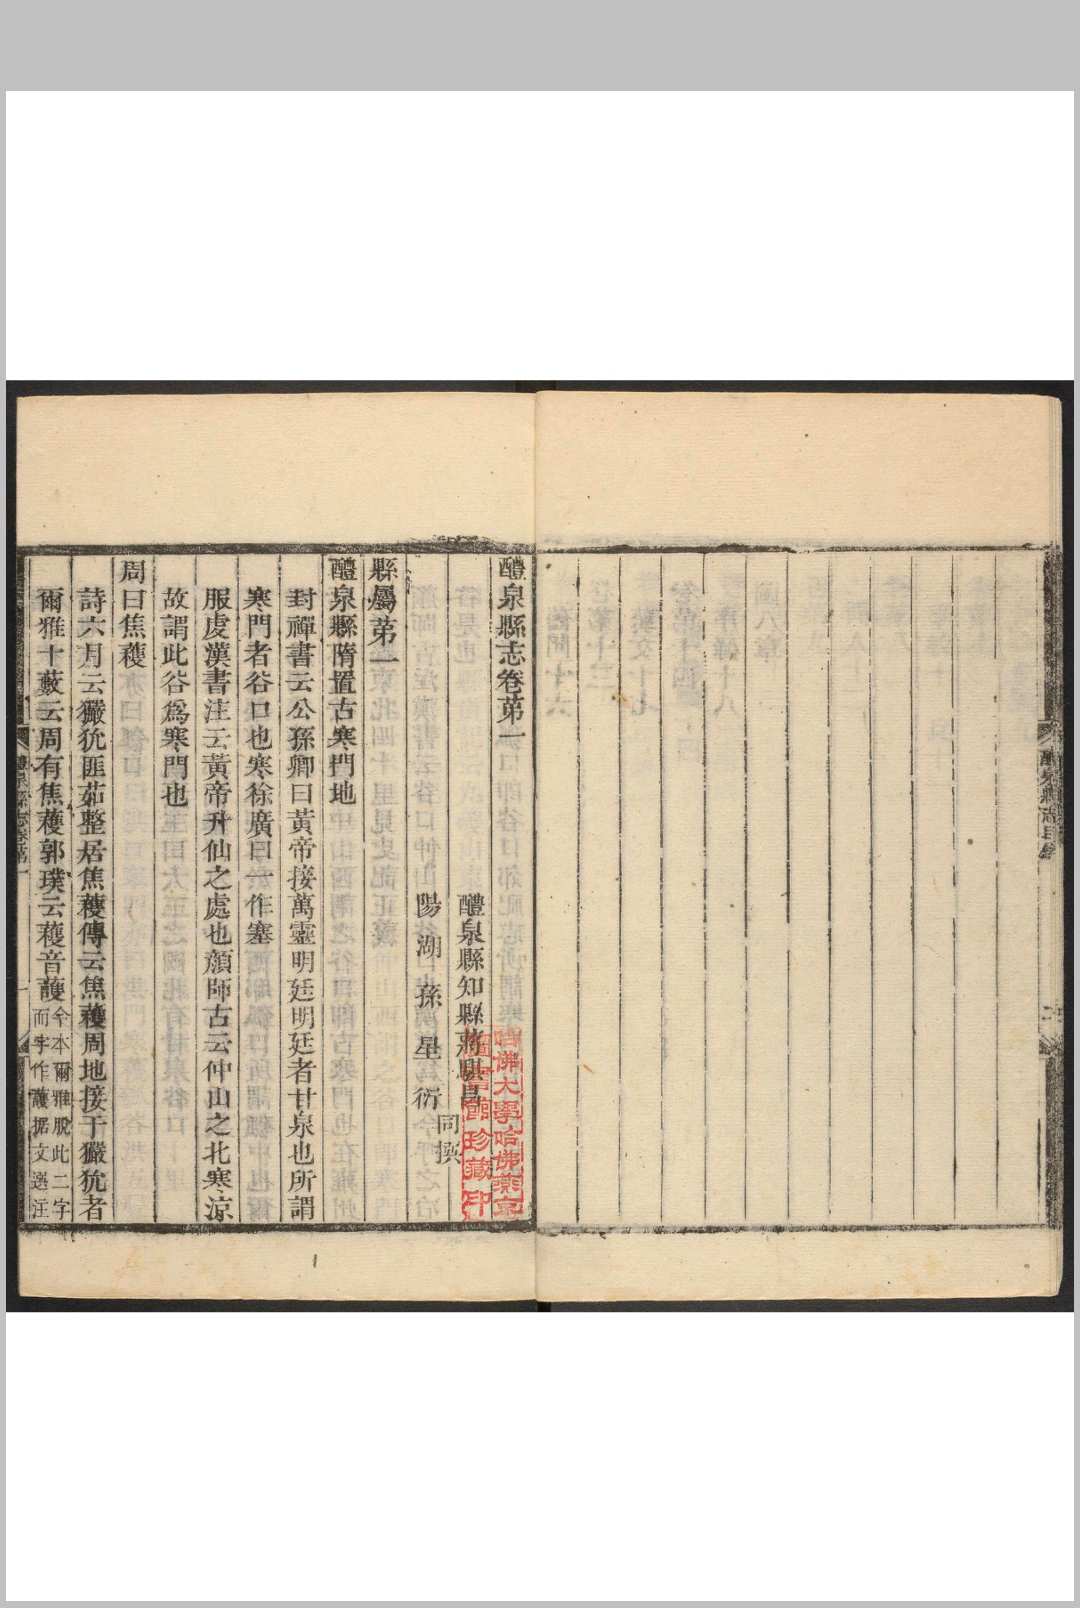 醴泉縣志卷苐一
醴泉縣知縣蔣騏昌
陽湖孫星衍
同撰
縣屬苐一
醴泉縣隋置古寒門地
封禪書云公孫卿曰黃帝接萬靈明廷明廷者甘泉也所謂
寒門者谷口也寒徐廣曰一作塞
服虔漢書注云黃帝升仙之處也顏師古云仲山之北寒涼
故謂此谷爲寒門也
周曰焦穫
詩六月云玁狁匪茹整居焦穫傳云焦穫周地接于玁狁者
爾雅十藪云周有焦穫郭璞云穫音護
今本爾雅脫此二字
而字作護据文選注
哈佛大學哈佛燕京
圖書館珍藏印
醴泉縣志目錄
醴泉縣志卷苐一
一
1